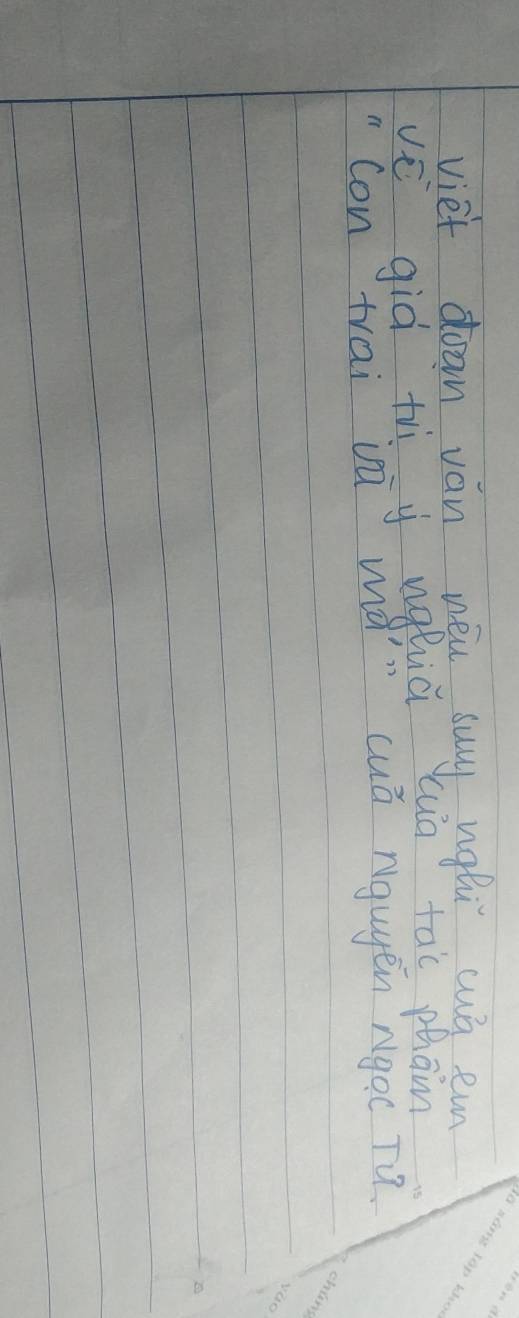 viết đoạn văn nêu suy nghĩ của em
về giá trị ý nghĩa của tác phẩm
"Con trai má" của Nguyễn Ngọc Tư.
15
chúng
vào